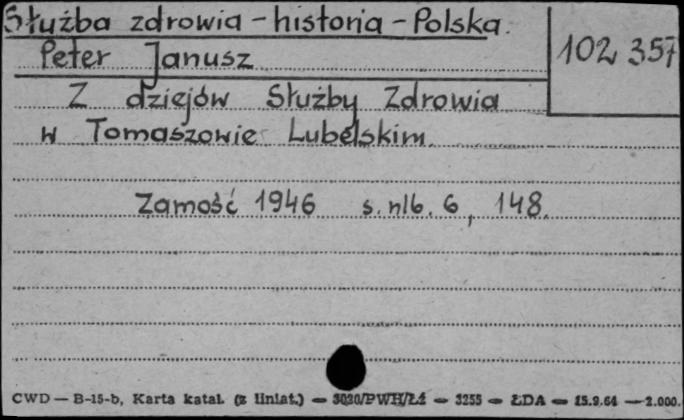 Służba zdrowia - historia - Polska.
102 357
Peter Janusz
Z dziejów Służby Zdrowia
w Tomaszowie Lubelskim.
Zamość 1946 s. nlb. 6, 148.
CWD — B-15-b, Karta katal. (z liniat.) — 3020/PWH/Łż — 3255 — ŁDA — 15.9.64 — 2.000.